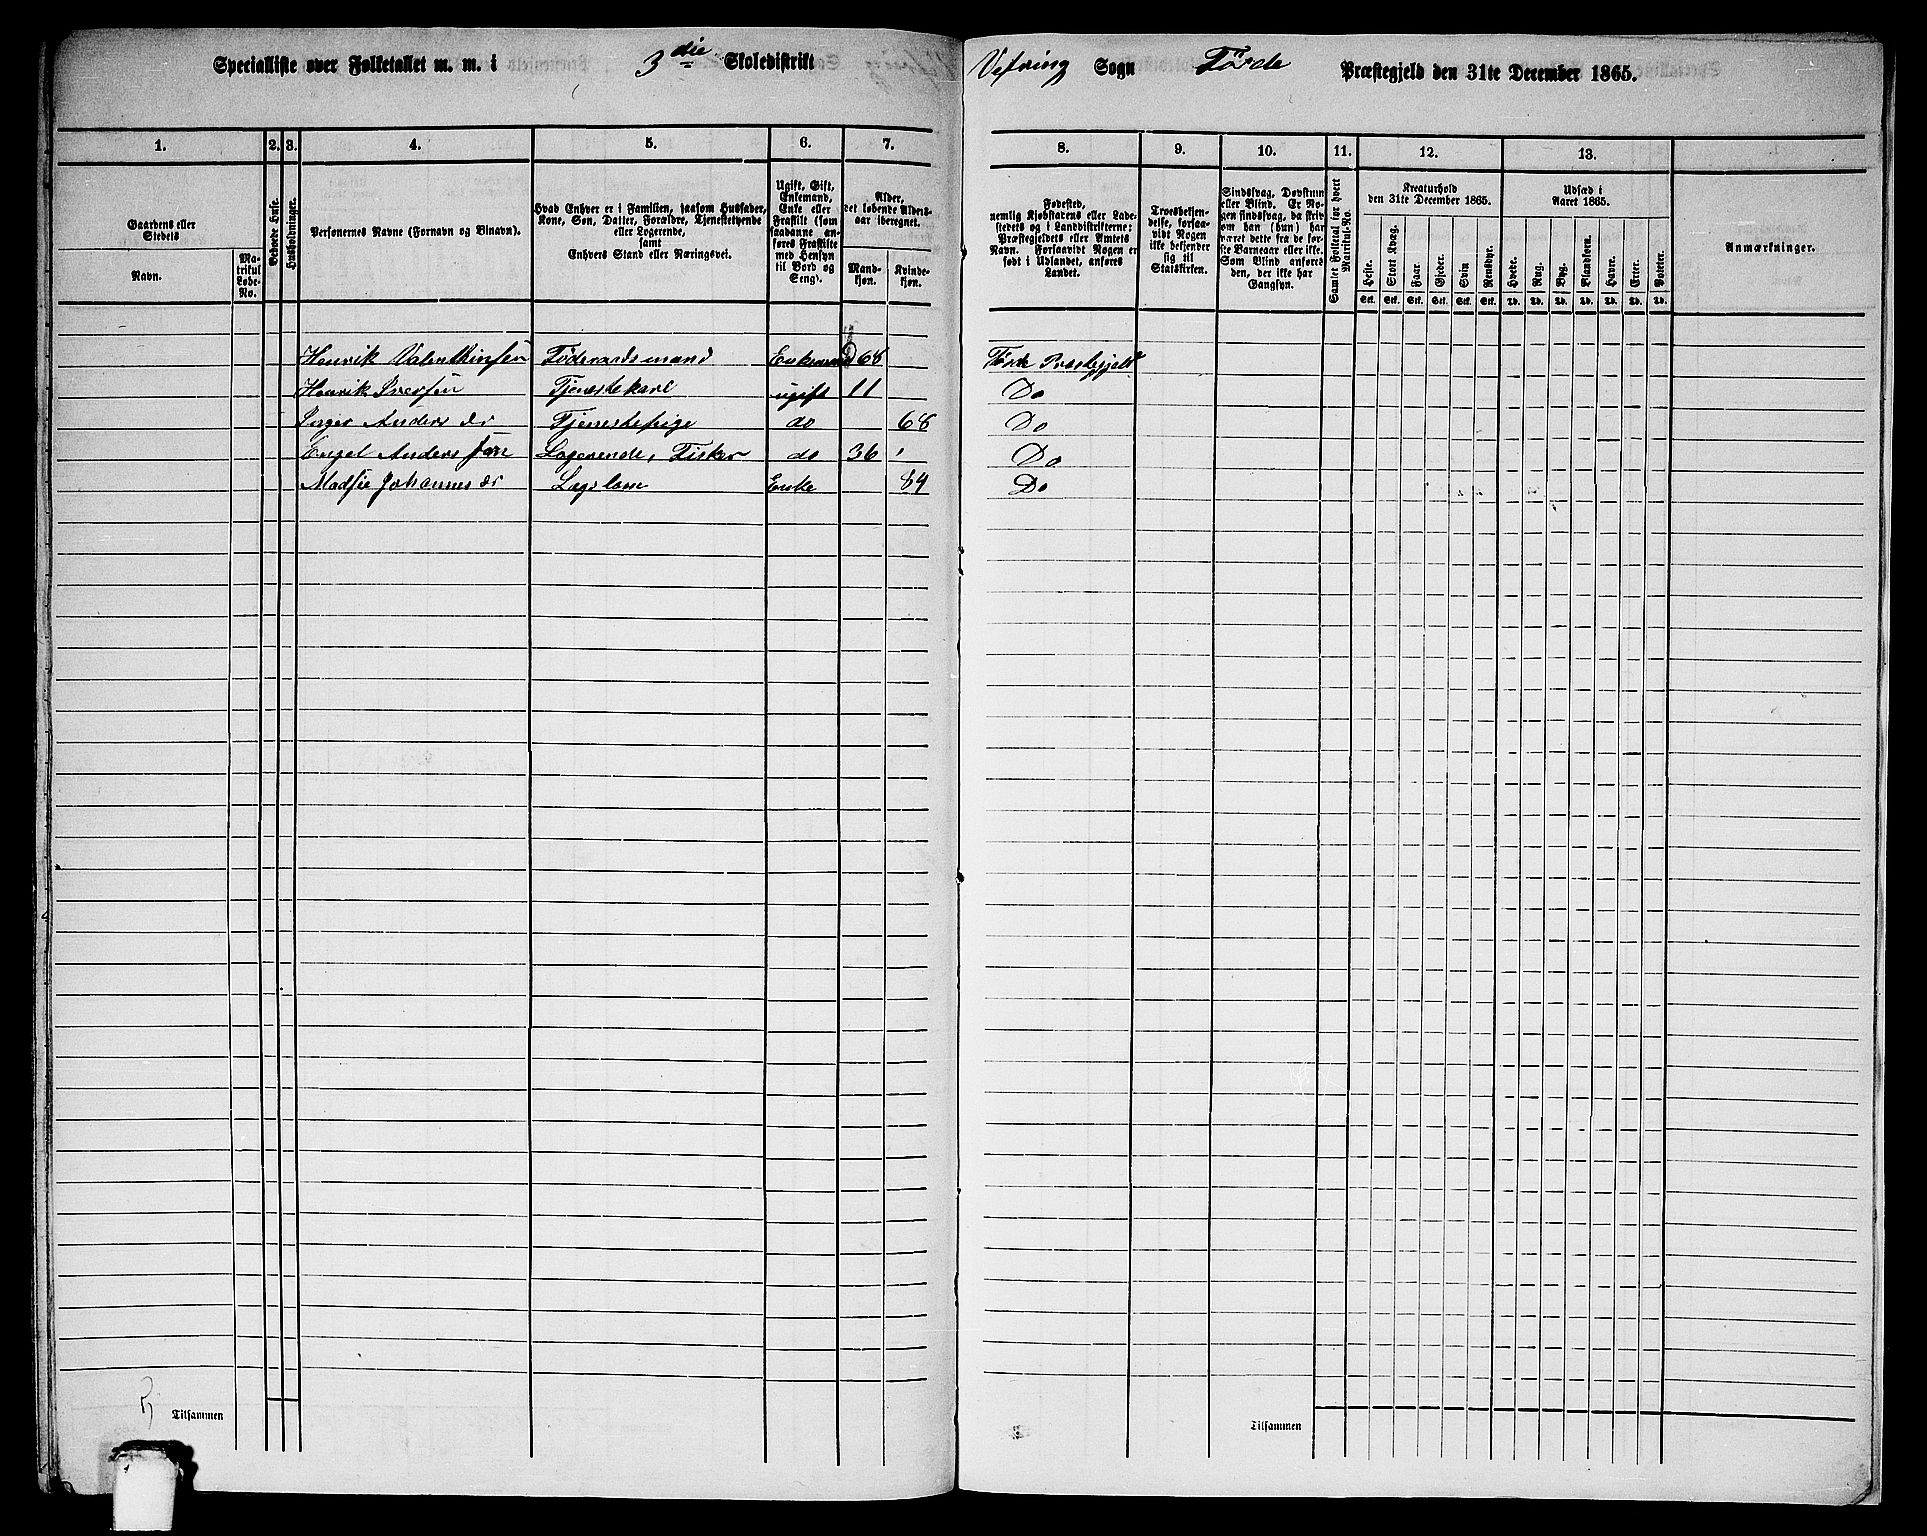 Specialliste over Folketallet m. m. i 3die Skoledistrikt Vefring Sogn Førde Præstegjeld den 31te December 1865.
1. 2. 3. 4. 5. 6. 7. 8. 9. 10. 11. 12. 13.
Gaardens eller Stedets
Navn.
Matrikul Løbe-No.
Beboede Huse.
Husholdninger.
Personernes Navne (Fornavn og Binavn).
Hvad Enhver er i Familien, saasom Husfader,
Kone, Søn, Datter, Forældre, Tjenestetyende
eller Logerende,
samt
Enhvers Stand eller Næringsvei.
Ugift, Gift,
Enkemand,
Enke eller
Fraskilt (som
saadanne anføres
Fraskilte
med Hensyn
til Bord og
Seng).
Alder,
det løbende Alders-
aar iberegnet.
Mand-
kjøn.
Kvinde-
kjøn.
Fødested,
nemlig Kjøbstadens eller Lade-
stedets og i Landdistrikterne:
Præstegjeldets eller Amtets
Navn. Forsaavidt Nogen er
født i Udlandet, anføres
Landet.
Troesbekjen-
delse, forsaa-
vidt Nogen
ikke bekjender
sig til
Statskirken.
Sindssvag, Døvstum
eller Blind. Er No-
gen sindssvag, da skriv
om han (hun) har
været dette fra de før-
ste Barneaar eller ikke.
Som Blind anføres
den, der ikke har
Gangsyn.
Samlet Folketal for hvert Matrikul-No.
Kreaturhold
den 31te December 1865.
Heste. Stort Kvæg. Faar. Gjeder. Svin. Rensdyr.
Stk. Stk. Stk. Stk. Stk. Stk.
Udsæd i
Aaret 1865.
Hvede. Rug. Byg. Blandkorn. Havre. Erter. Poteter.
Td. Td. Td. Td. Td. Td. Td.
Anmærkninger.
Henrik Valentinsen Føderaadsmand Enkemand 68 Førde Præstegjeld
Henrik Tjenestekarl ugift 11 Do
Anders dr Tjenestepige do 68 Do
Engel Anders søn Logerende, Fisker do 36 Do
Madsie Johannes dr Lægslem Enke 84 Do
Tilsammen Tilsammen